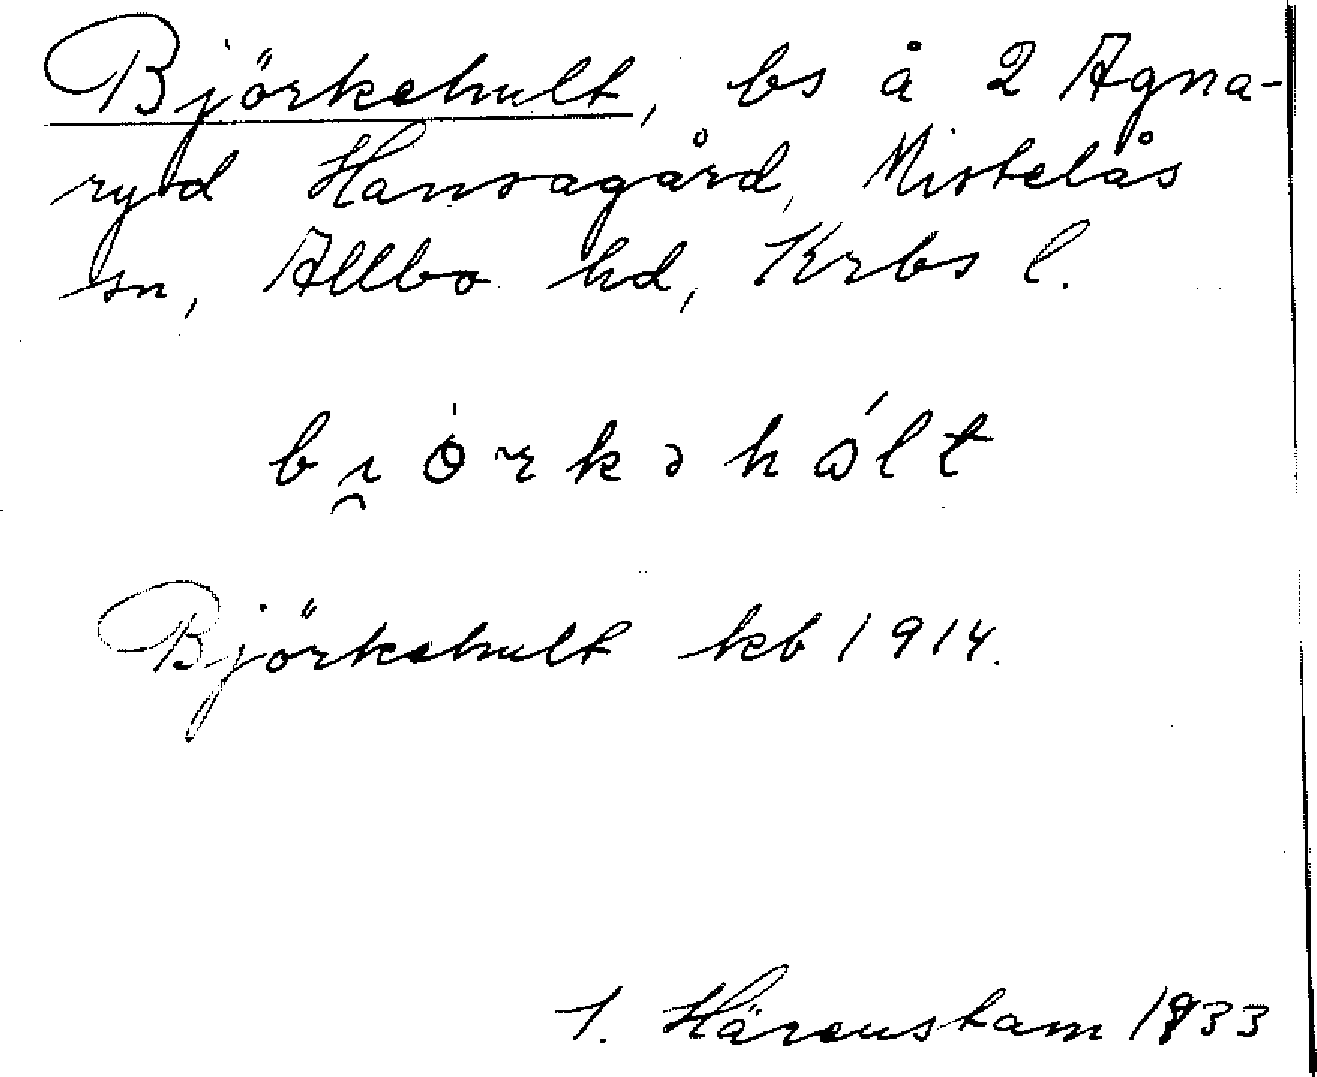 Björkehult, bs å 2 Agna-
ryd Hansagård, Mistelås
sn, Allbo hd, Krbs l.
bi̯örkəhált
Björkehult kb 1914.
I. Härenstam 1933